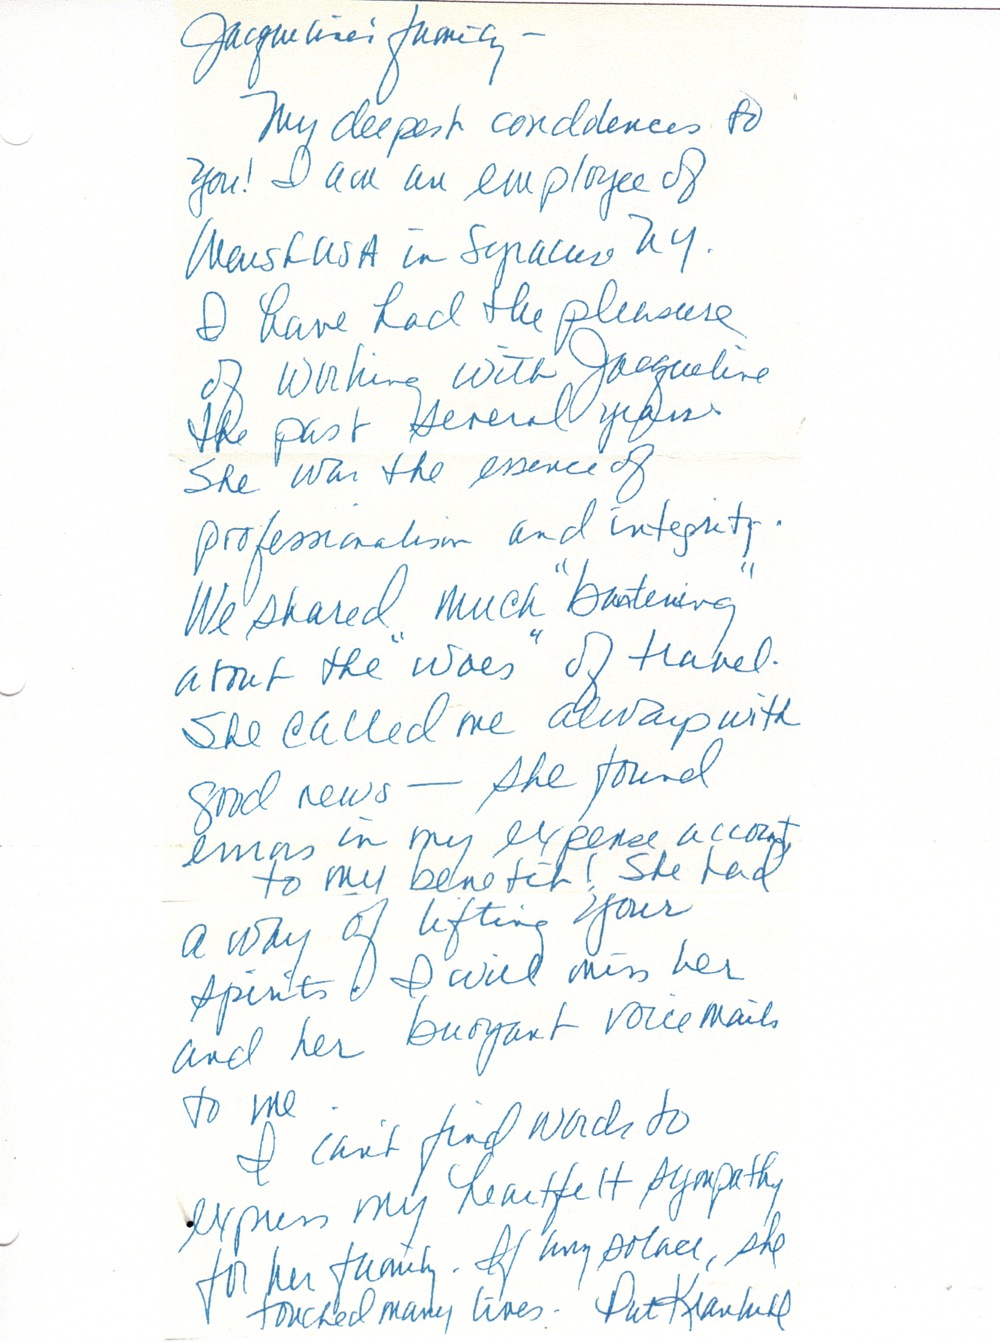 Jacqueline's family –
My deepest condolences to
you! I am an employee of
Marsh USA in Syracuse NY.
I have had the pleasure
of working with Jacqueline
the past several years.
She was the essence of
professionalism and integrity.
We shared much "bantering"
about the "woes" of travel.
She called me always with
good news — she found
errors in my expense account,
to my benefit! She had
a way of lifting your
spirits. I will miss her
and her buoyant voicemails
to me.
I can't find words to
express my heartfelt sympathy
for her family. If any solace, she
touched many lives. Pat